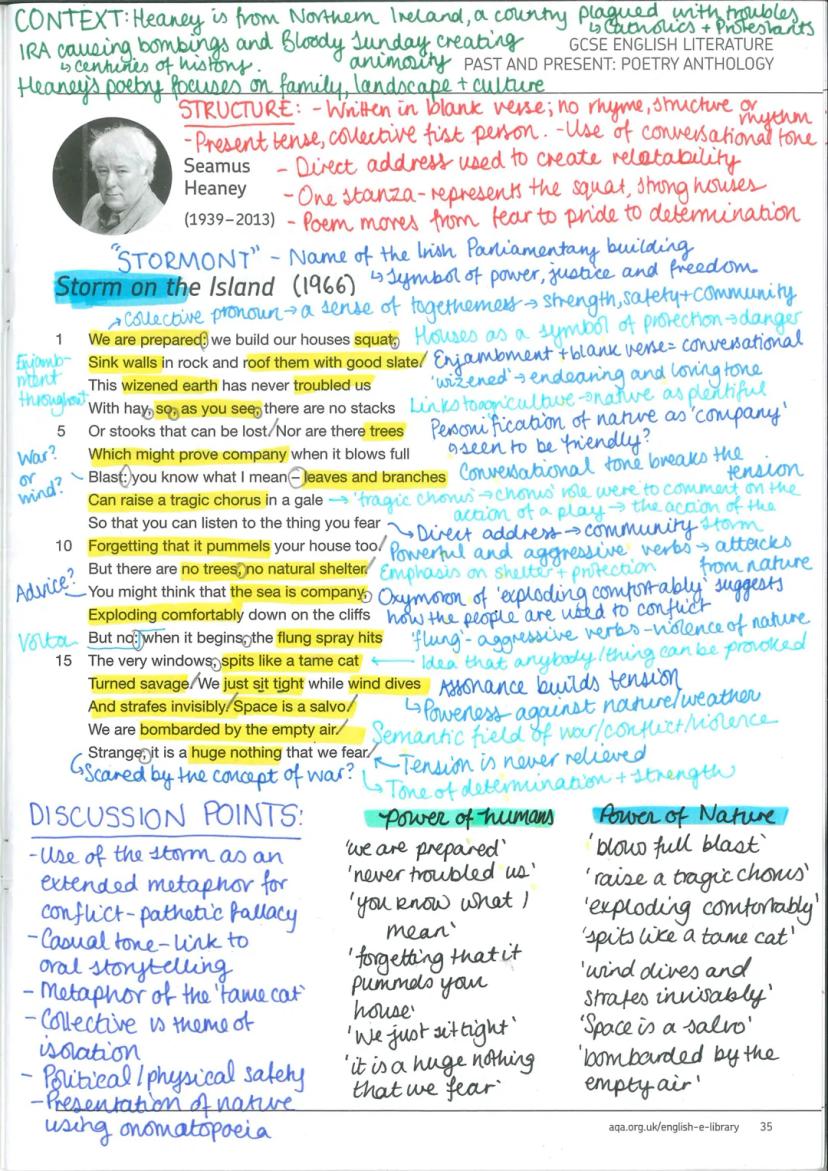 CONTEXT: Heaney is from Northern Ireland, a country plagued with troubles
↳ Catholics + Protestants
IRA causing bombings and Bloody Sunday, creating animosity
↳ centuries of history.
Heaney's poetry focuses on family, landscape + culture
GCSE ENGLISH LITERATURE
PAST AND PRESENT: POETRY ANTHOLOGY
STRUCTURE: - Written in blank verse; no rhyme, structure or rhythm
- Present tense, collective fist person. - Use of conversational tone
- Direct address used to create relatability
- One stanza - represents the squat, strong houses
- Poem moves from fear to pride to determination
Seamus
Heaney
(1939–2013)
"STORMONT" - Name of the Irish Parliamentary building
↳ symbol of power, justice and freedom
Storm on the Island (1966)
↗ collective pronoun → a sense of togetherness → strength, safety + community
1 We are prepared: we build our houses squat,
Houses as a symbol of protection → danger
Sink walls in rock and roof them with good slate/
Enjambment + blank verse = conversational
Enjamb-
ment
throughout
This wizened earth has never troubled us
'wizened' → endearing and loving tone
With hay, so, as you see, there are no stacks
Links to agriculture → nature as plentiful
5 Or stooks that can be lost/Nor are there trees
Personification of nature as 'company'
Which might prove company when it blows full
↳ seen to be friendly?
War?
or
wind?
Blast: you know what I mean – leaves and branches
Conversational tone breaks the tension
Can raise a tragic chorus in a gale
→ 'tragic chorus' → chorus' role were to comment on the
action of a play → the action of the storm
So that you can listen to the thing you fear
Direct address → community
10 Forgetting that it pummels your house too/
Powerful and aggressive verbs → attacks from nature
But there are no trees, no natural shelter/
Emphasis on shelter + protection
Advice?
You might think that the sea is company,
Oxymoron of 'exploding comfortably' suggests
Exploding comfortably down on the cliffs
how the people are used to conflict
Volta
But no: when it begins, the flung spray hits
'flung' - aggressive verbs - violence of nature
15 The very windows, spits like a tame cat
← Idea that anybody/thing can be provoked
Turned savage/We just sit tight while wind dives
Assonance builds tension
And strafes invisibly/Space is a salvo/
↳ Poweness against nature/weather
We are bombarded by the empty air/
Semantic field of war/conflict/violence
Strange, it is a huge nothing that we fear/
Tension is never relieved
↳ Scared by the concept of war?
↳ Tone of determination + strength
DISCUSSION POINTS:
- Use of the storm as an
extended metaphor for
conflict - pathetic fallacy
- Casual tone - link to
oral storytelling
- Metaphor of the 'tame cat'
- Collective is theme of
isolation
- Political/physical safety
- Presentation of nature
using onomatopoeia
Power of humans
'we are prepared'
'never troubled us'
'you know what I
mean'
'forgetting that it
pummels your
house'
'We just sit tight'
'it is a huge nothing
that we fear'
Power of Nature
'blow full blast'
'raise a tragic chorus'
'exploding comfortably'
'spits like a tame cat'
'wind dives and
strafes invisably'
'Space is a salvo'
'bombarded by the
empty air'
aqa.org.uk/english-e-library 35